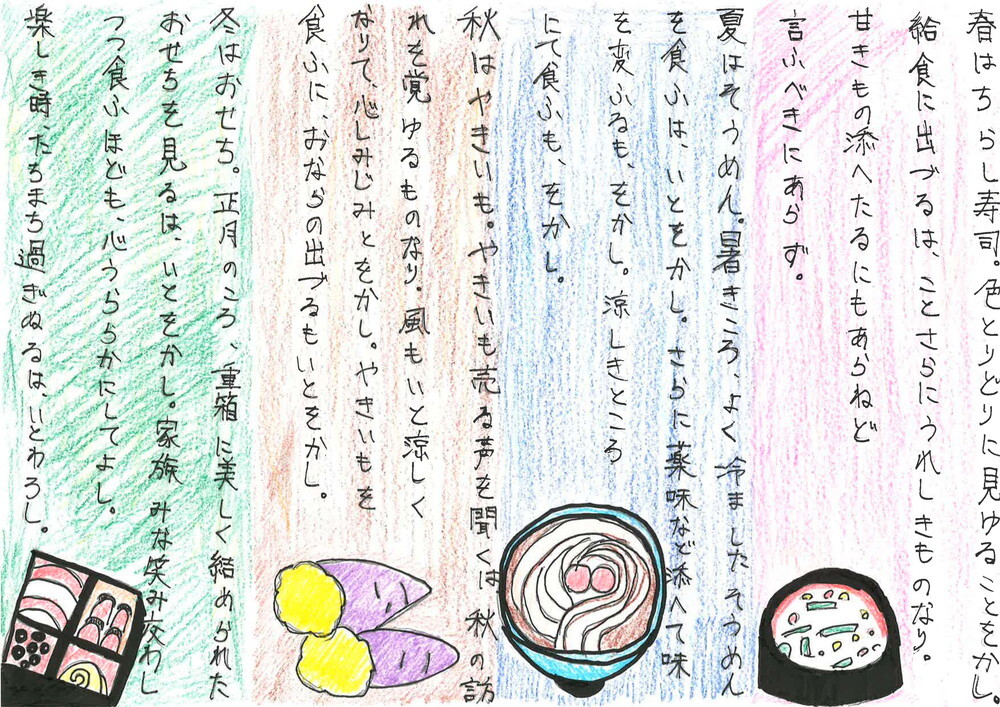 春はちらし寿司。色とりどりに見ゆることをかし。
給食に出づるは、ことさらにうれしきものなり。
甘きもの添へたるにもあらねど
言ふべきにあらず。
夏はそうめん。暑きころ、よく冷ましたそうめん
を食ふは、いとをかし。さらに薬味など添へて味
を変ふるも、をかし。涼しきところ
にて食ふも、をかし。
秋はやきいも。やきいも売る声を聞くは秋の訪
れを覚ゆるものなり。風もいと涼しく
なりて、心しみじみとをかし。やきいもを
食ふに、おならの出づるもいとをかし。
冬はおせち。正月のころ、重箱に美しく結められた
おせちを見るは、いとをかし。家族みな笑み交わし
つつ食ふほども、心うららかにしてよし。
楽しき時、たちまち過ぎぬるは、いとわろし。